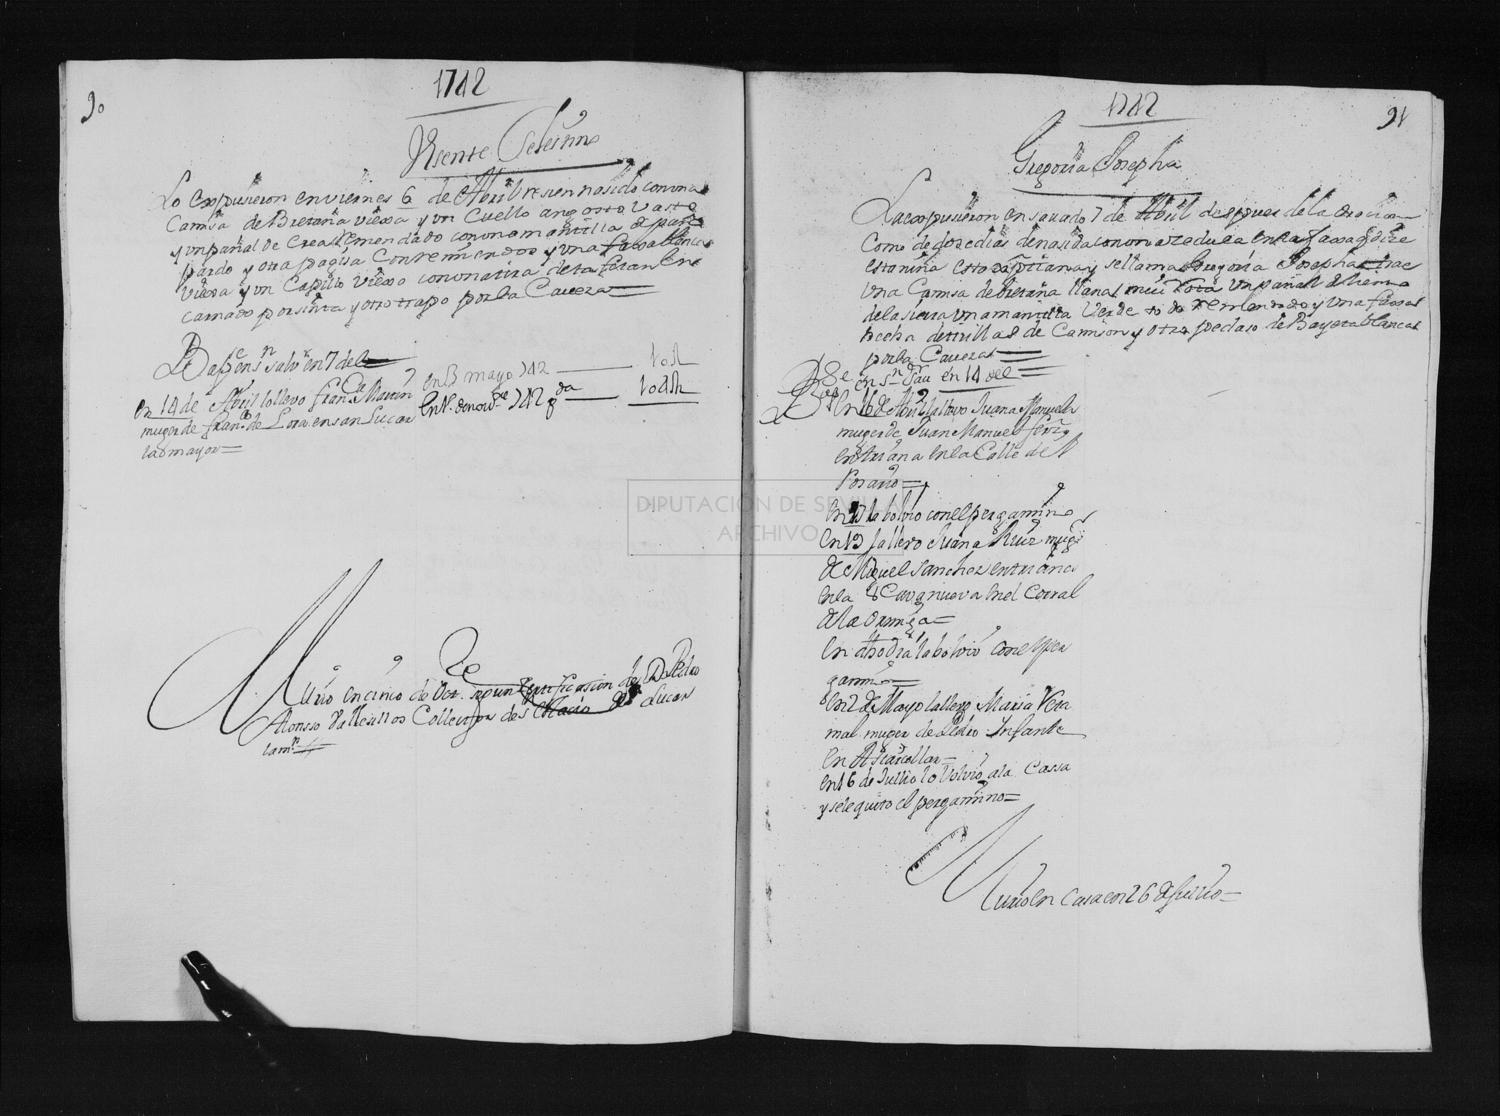 90
1742
Visente Selestino
Lo expusieron en viernes 6 de Abril resien nasido con una
Camisa de Bretaña viexa y un Cuello angosto basto
y un pañal de crea Remendado con una mantilla de paño
pardo y otra pagisa con remiendos y una faxa blanca
viexa y un Capillo viexo con una tira de tafetan En
carnado por sinta y otro trapo por la Caveza
en sn salvor en 7 del
en 14 de Abril lo llevo franca Martin
muger de franco de Lora en san Lucar
la mayor
en 3 mayo 742
En 1 de nove 742
Murio en cinco de Oct. segun Zertificasion de Dn Pedro
Alonso Vallecillos Collector de Sn Lucar
la mr
1742
91
Gregoria Josepha
La expusieron en savado 7 de Abril despues de la orasion
Como de dose dias de nasida con una zedula en la faxa q dize
esta niña esta xptiana y se llama Gregoria Josepha trae
una Camisa de bretaña llana mui Rota un pañal de lienso
de la sierra una mantilla Verde to do Remendado y una faxa
hecha de tirillas de Camison y otro pedaso de Bayeta blanca
por la Caveza
en Sn Sau en 14 del
En 16 de Abril la llevo Juana Manuela
muger de Juan Manuel
en triana en la Calle de
Rosario
la bolvio con el pergamino
En 19 la llevo Juana Ruiz mugr
de Miguel Sanchez en triana
en la Cava nueva En el Corral
de la
En dho dia la bolvio con el per
gamino
en 2 de Mayo la llevo Maria Vera
mal muger de Pedro Infante
en Asnarcollar
en 16 de Julio lo bolvio a la Cassa
y se le quito el pergamino
Murio en Casa en 26 de Julio
DIPUTACIÓN DE SEVILLA
ARCHIVO